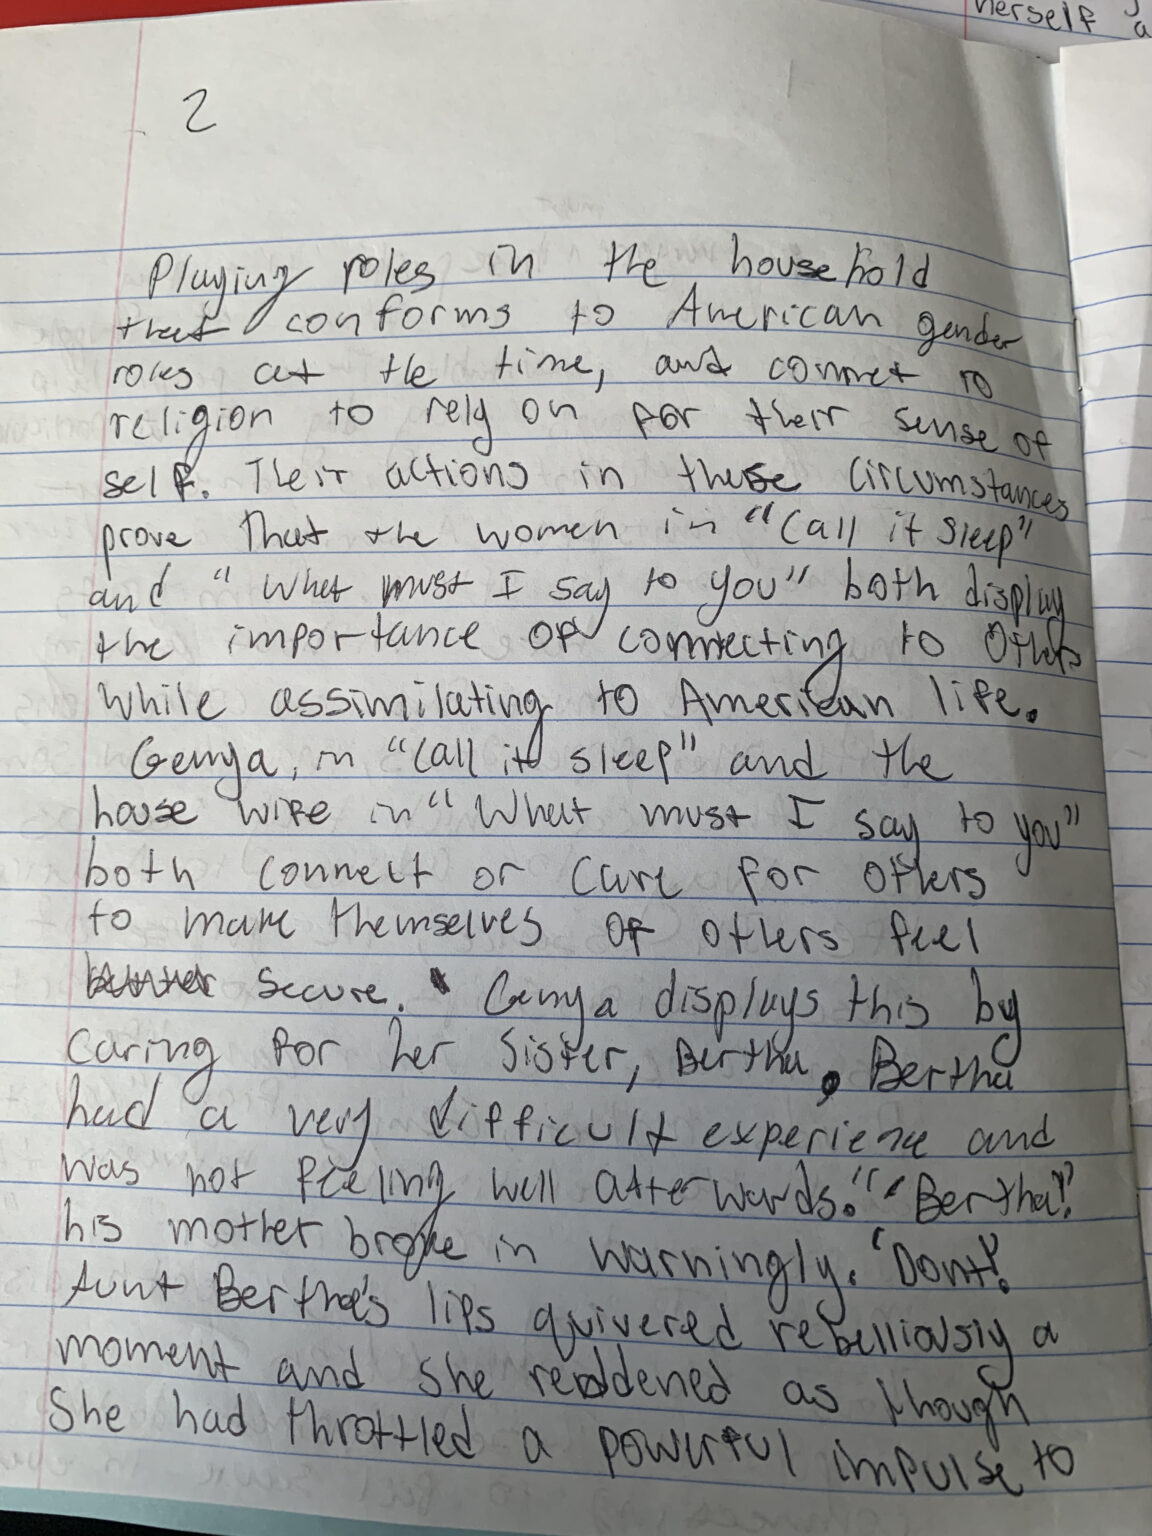 herself
a
2
Playing roles in the household
that conforms to American gender
roles at the time, and connect to
religion to rely on for their sense of
self. Their actions in these circumstances
prove that the women in "Call it Sleep"
and "What must I say to you" both display
the importance of connecting to others
while assimilating to American life.
Genya, in "Call it sleep" and the
house wife in "What must I say to you"
both connect or care for others
to make themselves or others feel
secure. Genya displays this by
caring for her sister, Bertha. Bertha
had a very difficult experience and
was not feeling well afterwards. "'Bertha!'
his mother broke in warningly. 'Dont!'
Aunt Bertha's lips quivered rebelliously a
moment and she reddened as though
she had throttled a powerful impulse to